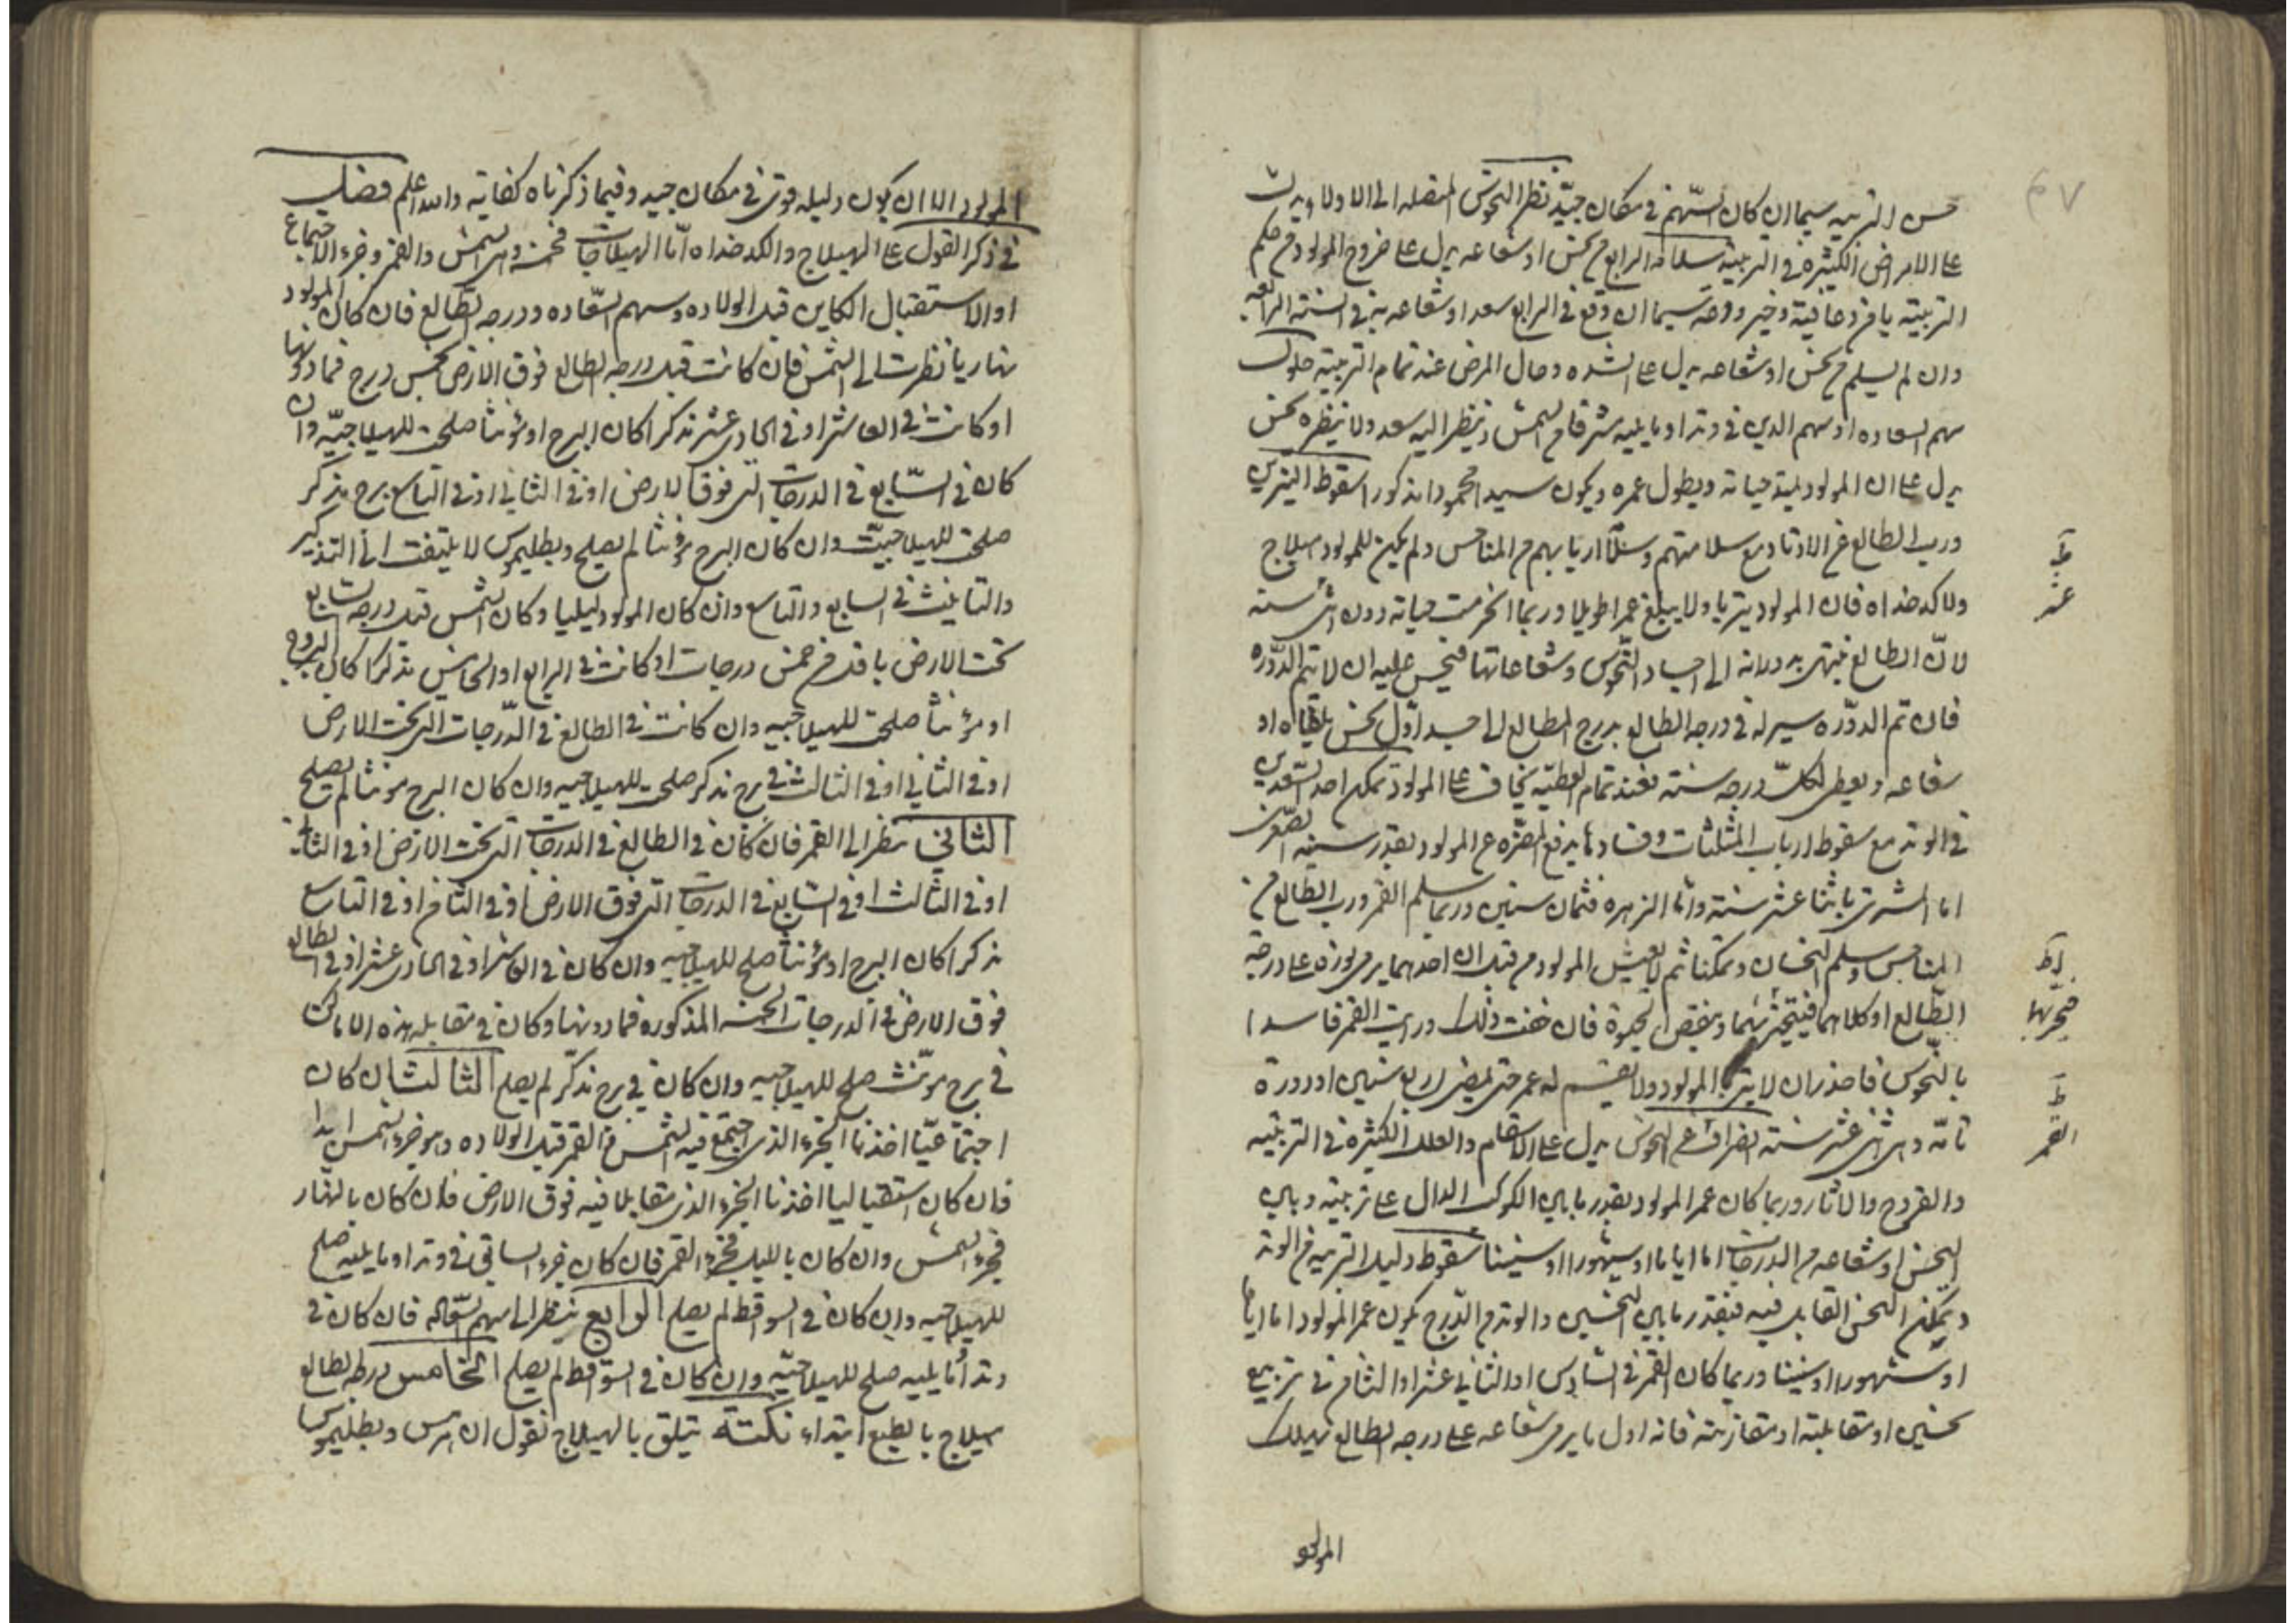 حسن التربيه سيما ان كان السهم في مكان جيد نظر النحوس المتصله الى الاولاد يدل
على الامراض الكثيره في التربية سلامه الرابع من نحس او شعاعه يدل على خروج المولود من حكم
التربيته عافية وخير وفرحه سيما ان وقع في الرابع سعد او شعاعه في السنة الرابعه
وان لم يسلم من نحس او شعاعه يدل على الشده وحال المرض عند تمام التربيته حلول
سهم السعاده او سهم الدين في وتد او ما يليه مشرقا من الشمس وينظر اليه سعد ولا ينظره نحس
يدل على ان المولود حياته ويطول عمره ويكون سيدا محمودا مذكورا سقوط النيرين
ورب الطالع عن الاوتاد مع سلامتهم وسلم اربابهم من المناحس ولم يكن للمولود هيلاج
ولا كدخداه فان المولود يتربا ولا يبلغ عمرا طويلا وربما انخرمت حياته دون اثنى سنه
لان الطالع ينتهى بدورانه الى اجساد النحوس وشعاعاتها فيخس عليه ان لا تتم الدوره
فان تم الدوره سير له في درجه الطالع بدرج المطالع الى جسد اول نحس يلقاه او
شعاعه ويعطى لكل درجه سنه فعند تمام العطيه يخاف على المولود تمكن احد السعدين
في الوتد مع سقوط ارباب المثلثات وفسادها يدفع المضره عن المولود بقدر سنيه الصغرى
اما المشترى باثنا عشر سنة واما الزهره فثمان سنين وربما سلم القمر ورب الطالع من
المناحس وسلم النحسان وتمكنا ثم لا يعيش المولود من قبل ان احدهما يرمى نوره على درجة
الطالع او كلاهما وينقص الحيوة فان خفت ذلك ورايت القمر فاسدا
بالنحوس فاحذر ان لا يتربا المولود ولا تقسم له عمر حتى تمضى اربع سنين او دورة
تامه وهى اثنى عشر سنة انصراف عن النحوس يدل على الاسقام والعلل الكثيره في التربيه
والقروح والاثار وربما كان عمر المولود بقدر ما بين الكوكب الدال على تربيته وبين
النحس او شعاعه من الدرجات اما اياما او شهورا او سنينا سقوط دليل التربيه من الوتد
وتمكن النحس القابل فيه فبقدر ما بين النحسين والوتد من الدرج يكون عمر المولود اما اياما
او شهورا او سنينا وربما كان القمر في السادس او الثاني عشر او الثامن في تربيع
نحسين او مقابلته او مقارنته فانه اول ما يرمى شعاعه على درجه الطالع يهلك
المولو
المولود الا ان يكون دليله قوى في مكان جيد وفيما ذكرناه كفايه والله اعلم فصل
في ذكر القول على الهيلاج والكدخداه اما الهيلاجات فخمسه وهى الشمس والقمر وجزء الاجتماع
او الاستقبال الكاين قبل الولاده وسهم السعاده ودرجه الطالع فان كان المولود
نهاريا نظرت الى الشمس فان كانت قبل درجه الطالع فوق الارض بخمس درج فما دونها
او كانت في العاشر او في الحادى عشر مذكرا كان البرج او مؤنثا صلحت للهيلاجيه وان
كان في السابع في الدرجات التى فوق الارض او في الثامن او في التاسع برج مذكر
صلحت للهيلاجيه وان كان البرج مؤنثا لم يصلح وبطليموس لا يلتفت الى التذكير
والتانيث في السابع والتاسع وان كان المولود ليليا وكان الشمس قبل درجه السابع
تحت الارض باقل من خمس درجات او كانت في الرابع او الخامس مذكرا كان البروج
او مؤنثا صلحت للهيلاجيه وان كانت في الطالع في الدرجات التى تحت الارض
او في الثاني او في الثالث في برج مذكر صلحت للهيلاجيه وان كان البرج مونثا لم يصلح
الثاني ينظر الى القمر فان كان في الطالع في الدرجات التى تحت الارض او في الثانى
او في الثالث او في السابع في الدرجات التى فوق الارض او في الثامن او في التاسع
مذكرا كان البرج او مؤنثا صلح للهيلاجيه وان كان في العاشر او في الحادى عشر او في الطالع
فوق الارض في الدرجات الخمسه المذكوره فما دونها وكان في مقابله هذه الاماكن
في برج مونث صلح للهيلاجيه وان كان في برج مذكر لم يصلح الثالث ان كان
اجتماعيا اخذنا الجزء الذى اجتمع فيه الشمس والقمر قبل الولاده وهو جزء الشمس ابدا
فان كان استقباليا اخذنا الجزء الذى تقابلا فيه فوق الارض فان كان بالنهار
فجزء الشمس وان كان بالليل فجزء القمر فان كان جزء السابق في وتد او ما يليه صلح
للهيلاجيه وان كان في السواقط لم يصلح الرابع ينظر الى سهم السعاده فان كان في
وتد او ما يليه صلح للهيلاجيه وان كان في السواقط لم يصلح الخامس درجه الطالع
هيلاج بالطبع ابتداء نكته يتعلق بالهيلاج نقول ان هرمس وبطليموس